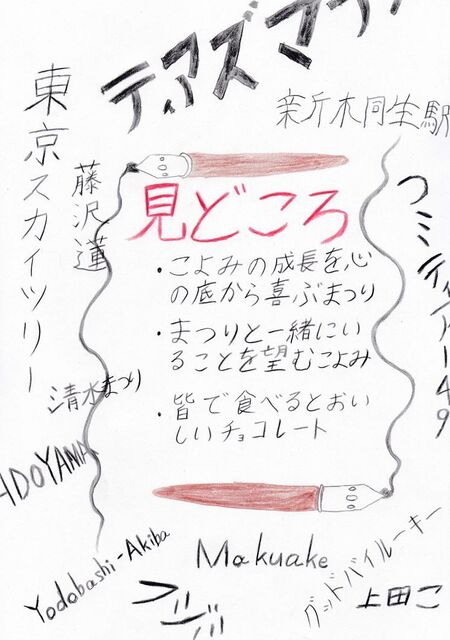 ティアズマ
新桐生駅
東京スカイツリー
藤沢蓮
見どころ
・こよみの成長を心
の底から喜ぶまつり
・まつりと一緒にい
ることを望むこよみ
・皆で食べるとおい
しいチョコレート
コミティア149
清水まつり
ADOYAMA
Yodobashi-Akiba
Makuake
グッドバイルーキー
上田こ